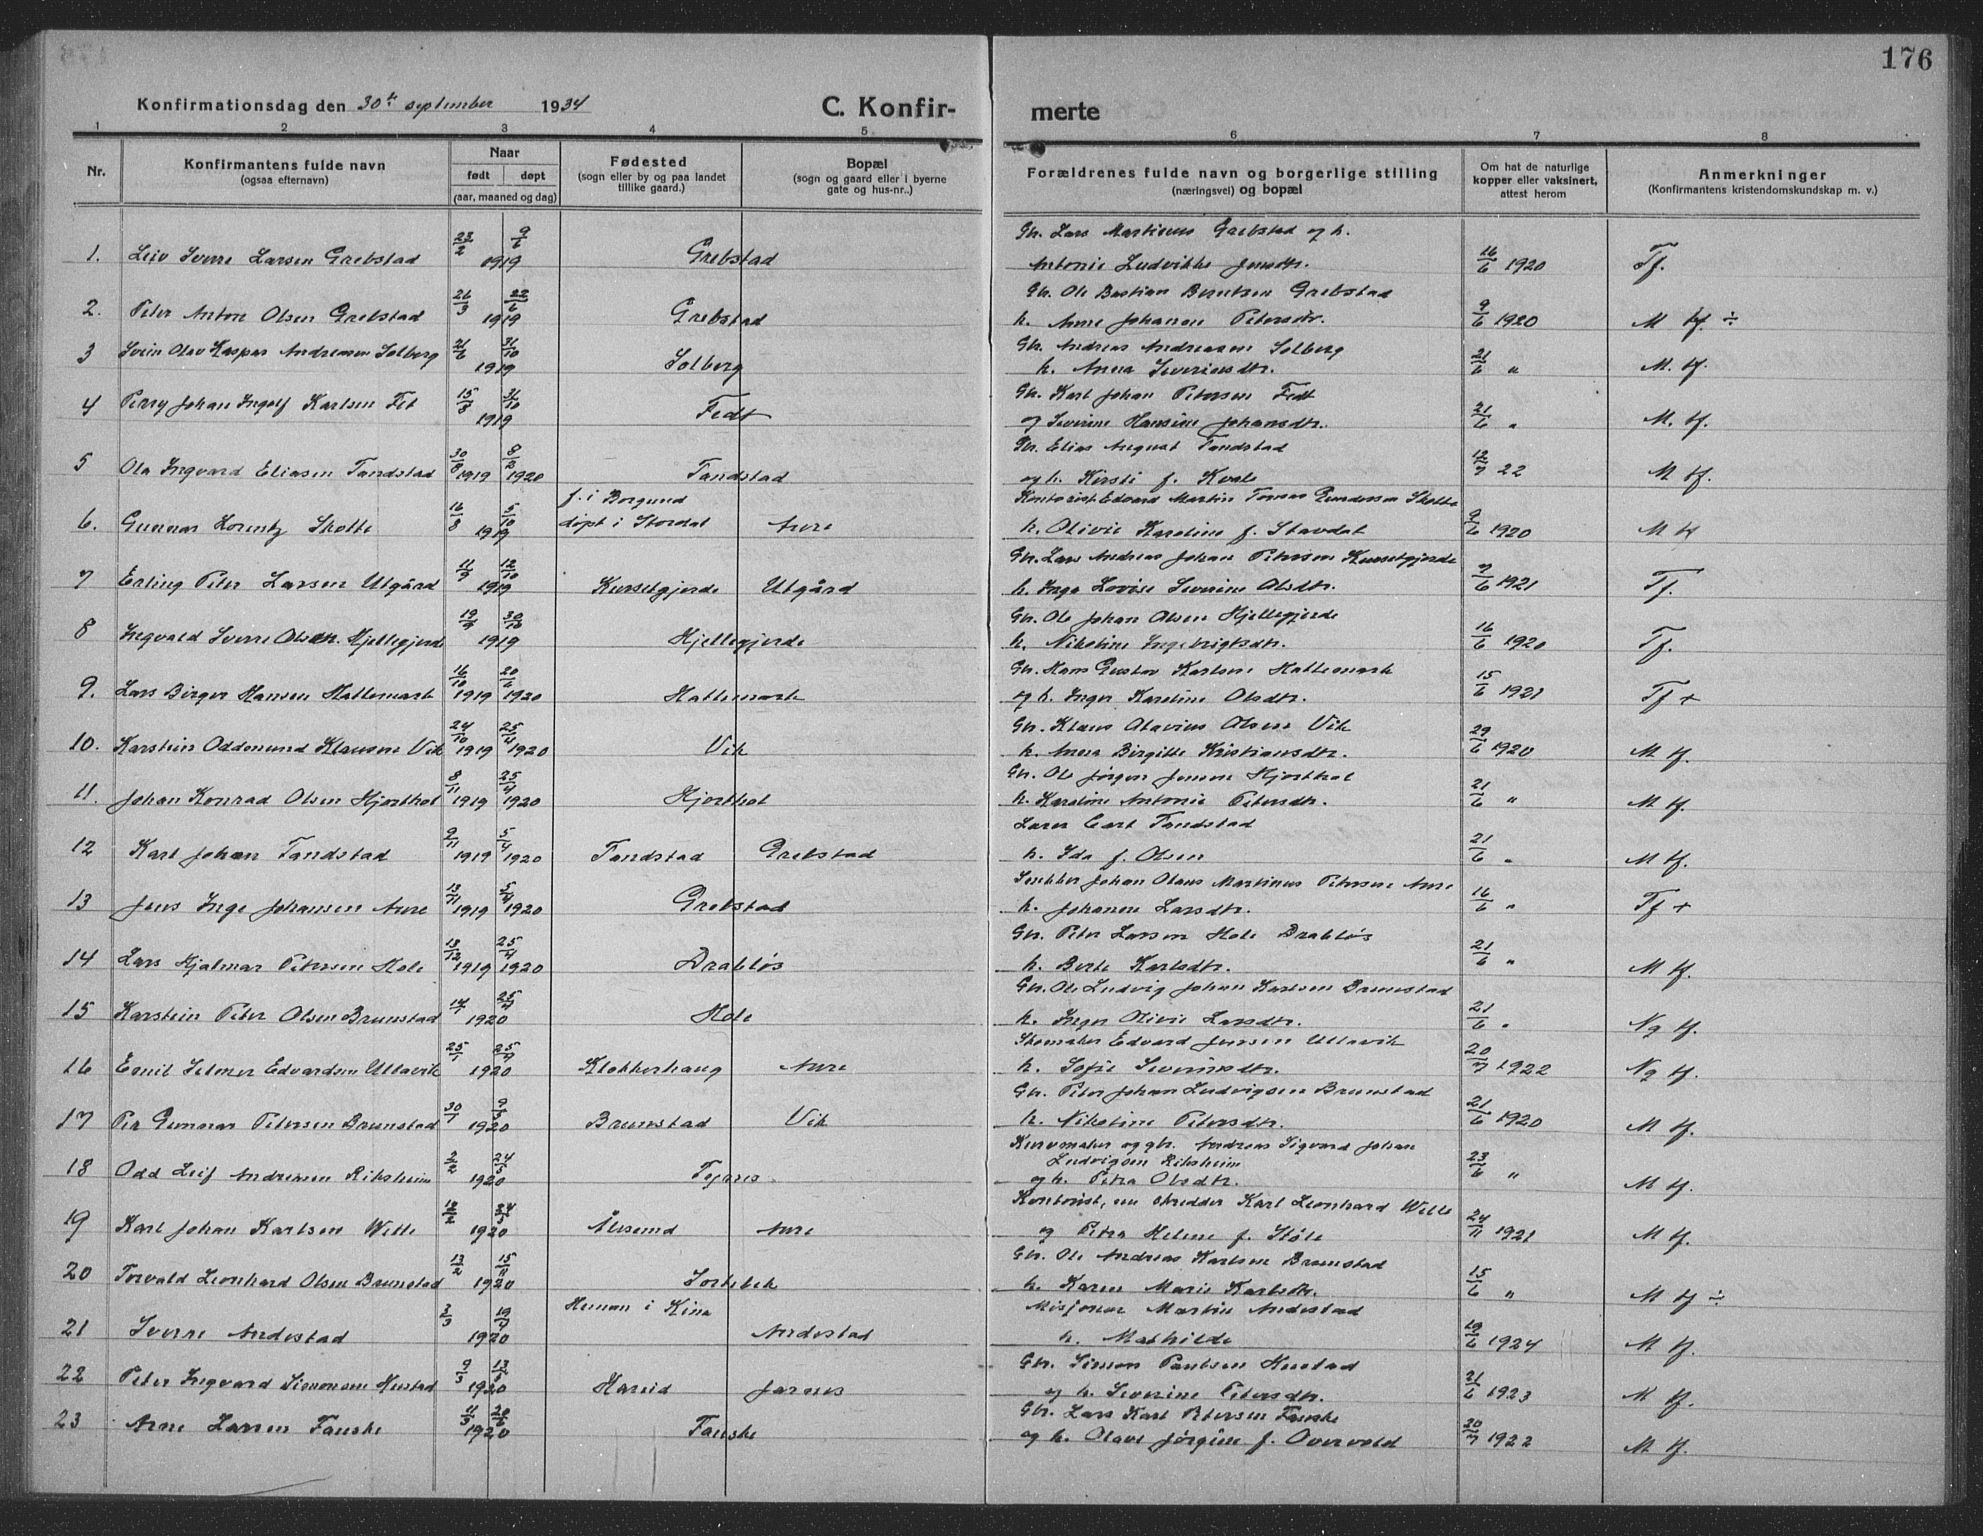 176
Konfirmationsdag den 30te september 1934
C. Konfirmerte
1 2 3 4 5 6 7 8
Nr.
Konfirmantens fulde navn
(ogsaa efternavn)
Naar
født døpt
(aar, maaned og dag)
Fødested
(sogn eller by og paa landet
tillike gaard.)
Bopæl
(sogn og gaard eller i byerne
gate og hus-nr..)
Forældrenes fulde navn og borgerlige stilling
(næringsvei) og bopæl
Om hat de naturlige
kopper eller vaksinert,
attest herom
Anmerkninger
(Konfirmantens kristendomskundskap m. v.)
Gbr. Lars Martinus Grebstad og h.
1. Leiv Sverre Larsen Grebstad 23/2 9/6 1919 Grebstad Antonie Ludvikke Jensdtr. 16/6 1920 Tf.
Gbr. Ole Bastian Berntsen Grebstad
2. Peter Anton Olsen Grebstad 26/3 22/6 1919 Grebstad h. Anne Johanne Petersdtr. 9/6 1920 M tf ÷
Gbr. Andreas Andreasen Solberg
3 Svein Olav Kaspar Andreasen Solberg 21/6 31/10 1919 Solberg h. Anna Severinsdtr. 21/6 " M. tf.
Gbr. Karl Johan Petersen Fedt
4 Perry Johan Ingolf Karlsen Fet 15/8 31/10 1919 Fedt og Severine Hansine Johansdtr. 21/6 " M. tf.
Gbr. Elias August Tandstad
5 Ola Ingvard Eliasen Tandstad 30/8 1919 8/2 1920 Tandstad og h. Kirsti f. Kvale 12/7 22 M tf.
f. i Borgund
Kontorist Edvard Martin Tomas Gundersen Skotte
6. Gunnar Lorentz Skotte 16/8 5/10 1919 døpt i Stordal Aure h. Olivie Karoline f. Stavdal 9/6 1920 M tf
Gbr. Lars Andreas Johan Petersen Kursetgjerde
7 Erling Peter Larsen Utgård 11/9 12/10 1919 Kursetgjerde Utgård h. Inga Lovise Severine Olsdtr. 7/6 1921 Tf.
Gbr. Ole Johan Olsen Hjellegjerde
8 Ingvald Sverre Olsen Hjellegjerde 19/9 30/10 1919 Hjellegjerde h. Nikoline Ingebrigtsdtr. 16/6 1920 Tf.
Gbr. Hans Gustav Karlsen Hattemark
9. Lars Birger Hansen Hattemark 16/10 1919 20/6 1920 Hattemark og h. Inger Karoline Olsdtr. 15/6 1921 Tf +
Gbr. Klaus Olavius Olsen Vik
10. Karstein Oddmund Klausen Vik 24/10 1919 25/4 1920 Vik h. Anna Birgitte Kristiansdtr. 29/6 1920 M tf.
Gbr. Ole Jørgen Jensen Hjorthol
11. Johan Konrad Olsen Hjorthol 8/11 1919 25/4 1920 Hjorthol h. Karoline Antonie Petersdtr. 21/6 " M tf.
Lærer Carl Tandstad
12 Karl Johan Tandstad 9/11 1919 5/4 1920 Tandstad Grebstad h. Ida f. Olsen 21/6 " M tf.
Snekker Johan Olaus Martinus Petersen Aure
13 Jens Inge Johansen Aure 13/11 1919 5/4 1920 Grebstad h. Johanne Larsdtr. 16/6 " Tf +
Gbr. Peter Larsen Hole Drabløs
14 Lars Hjalmar Petersen Hole 13/12 1919 25/4 1920 Drabløs h. Berte Karlsdtr. 21/6 " M tf.
Gbr. Ole Ludvig Johan Karlsen Brunstad
15 Karstein Peter Olsen Brunstad 14/1 25/4 1920 Hole h. Inger Olivie Larsdtr. 21/6 " Ng tf.
Skomaker Edvard Jensen Ullavik
16 Emil Selmer Edvardsen Ullavik 25/1 25/4 1920 Klokkerhaug Aure h. Sofie Severinsdtr. 20/7 1922 Ng tf.
Gbr. Peter Johan Ludvigsen Brunstad
17 Per Gunnar Petersen Brunstad 30/1 9/5 1920 Brunstad Vik h. Nikoline Petersdtr. 21/6 1920 M tf.
Kurvmaker og gbr. Andreas Sigvard Johan
Ludvigsen Riksheim
18 Odd Leif Andreasen Riksheim 2/2 24/5 1920 Tynes og h. Petra Olsdtr. 23/6 " M tf.
Kontorist, nu skredder Karl Leonhard Welle
19 Karl Johan Karlsen Welle 12/2 24/5 1920 Ålesund Aure og Petra Helene f. Støle 24/11 1921 M tf.
Gbr. Ole Andreas Karlsen Brunstad
20 Torvald Leonhard Olsen Brunstad 13/2 15/11 1920 Sortebek h. Karen Marie Karlsdtr. 15/6 " M tf ÷
Hunan i Kina
Misjonær Martin Andestad
21 Sverre Andestad 3/3 19/4 1920 Andestad h. Mathilde 19/6 1924 M tf.
Gbr. Simon Paulsen Hustad
22 Peter Ingvard Simonsen Hustad 9/3 13/5 1920 Hareid Jarnes og h. Severine Petersdtr. 21/6 1923 M tf.
Gbr. Lars Karl Petersen Fauske
23 Arne Larsen Fauske 11/3 20/6 1920 Fauske og h. Olave Jørgine f. Overvold 20/7 1922 M tf.